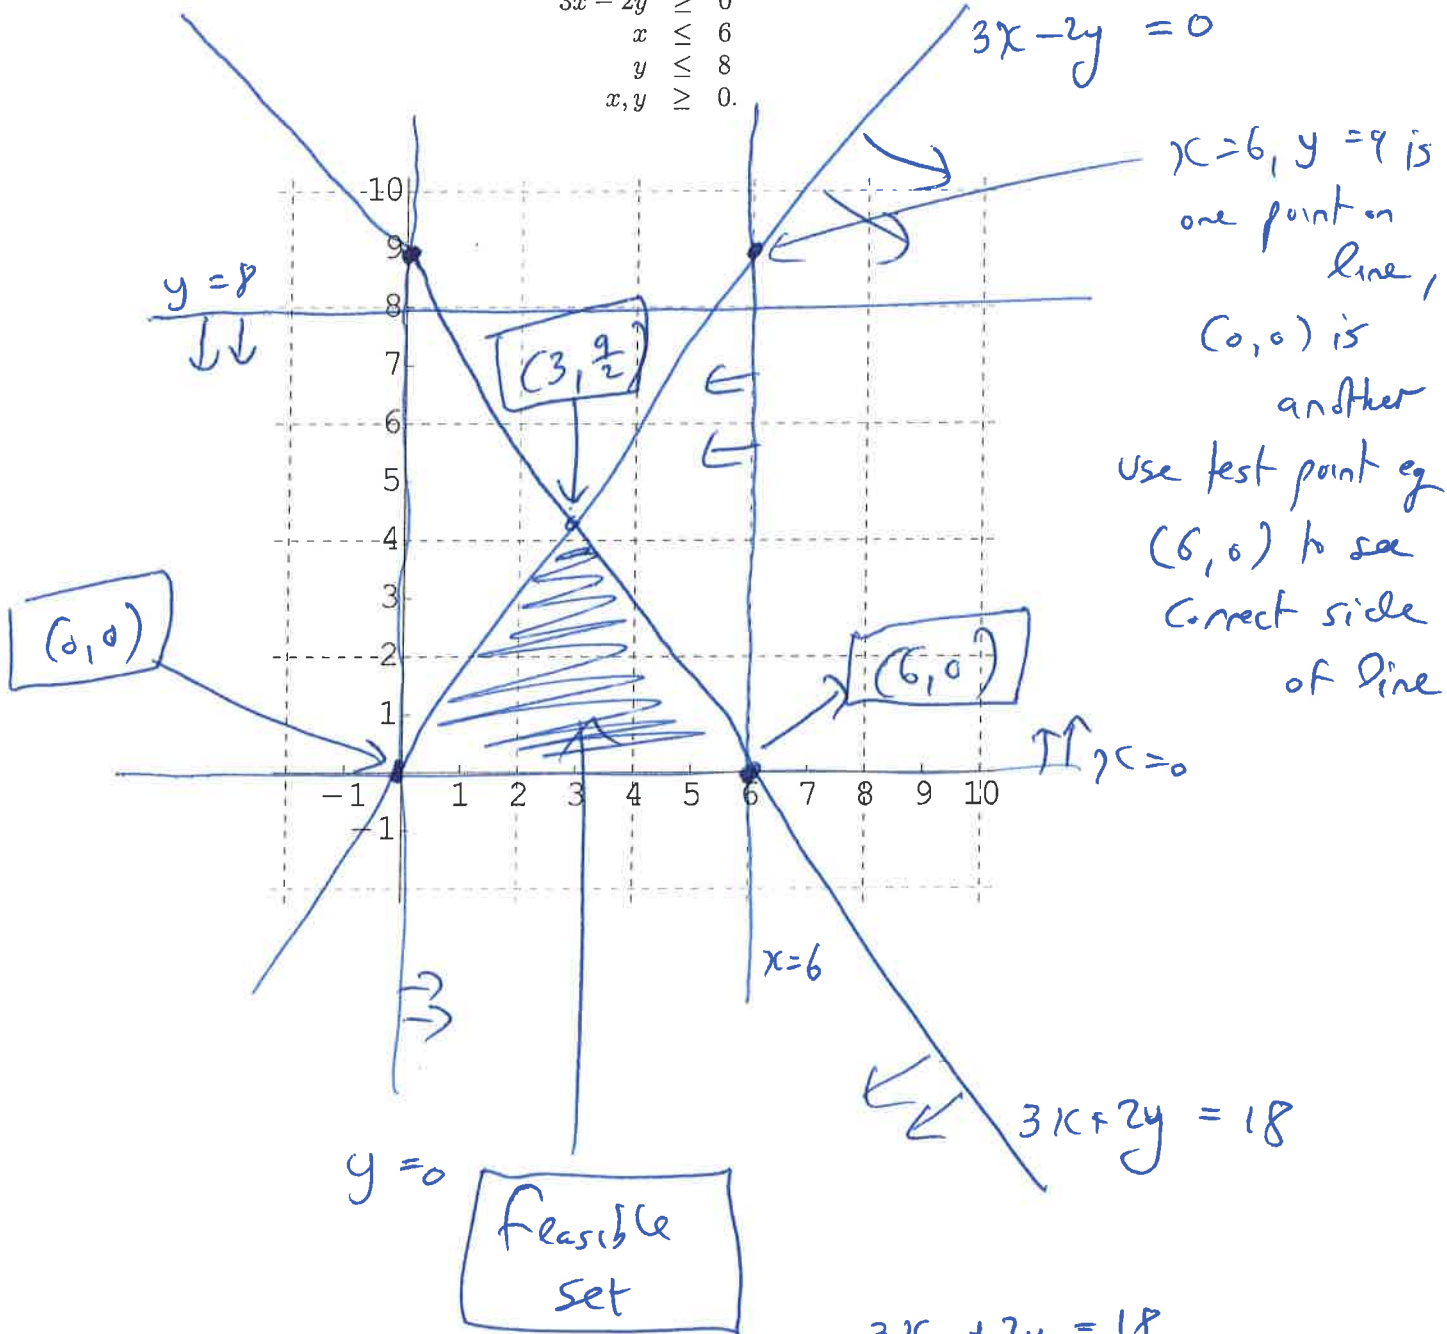 3x − 2y ≥ 0
x ≤ 6
y ≤ 8
x, y ≥ 0.
3x − 2y = 0
x = 6, y = 9 is
one point on
line,
(0,0) is
another
use test point eg
(6,0) to see
correct side
of line
y = 8
(3, 9/2)
10
9
8
7
6
5
4
3
2
1
−1
(0,0)
(6,0)
x = 0
−1 1 2 3 4 5 6 7 8 9 10
x = 6
3x + 2y = 18
y = 0
feasible
set
3x + 2y = 18